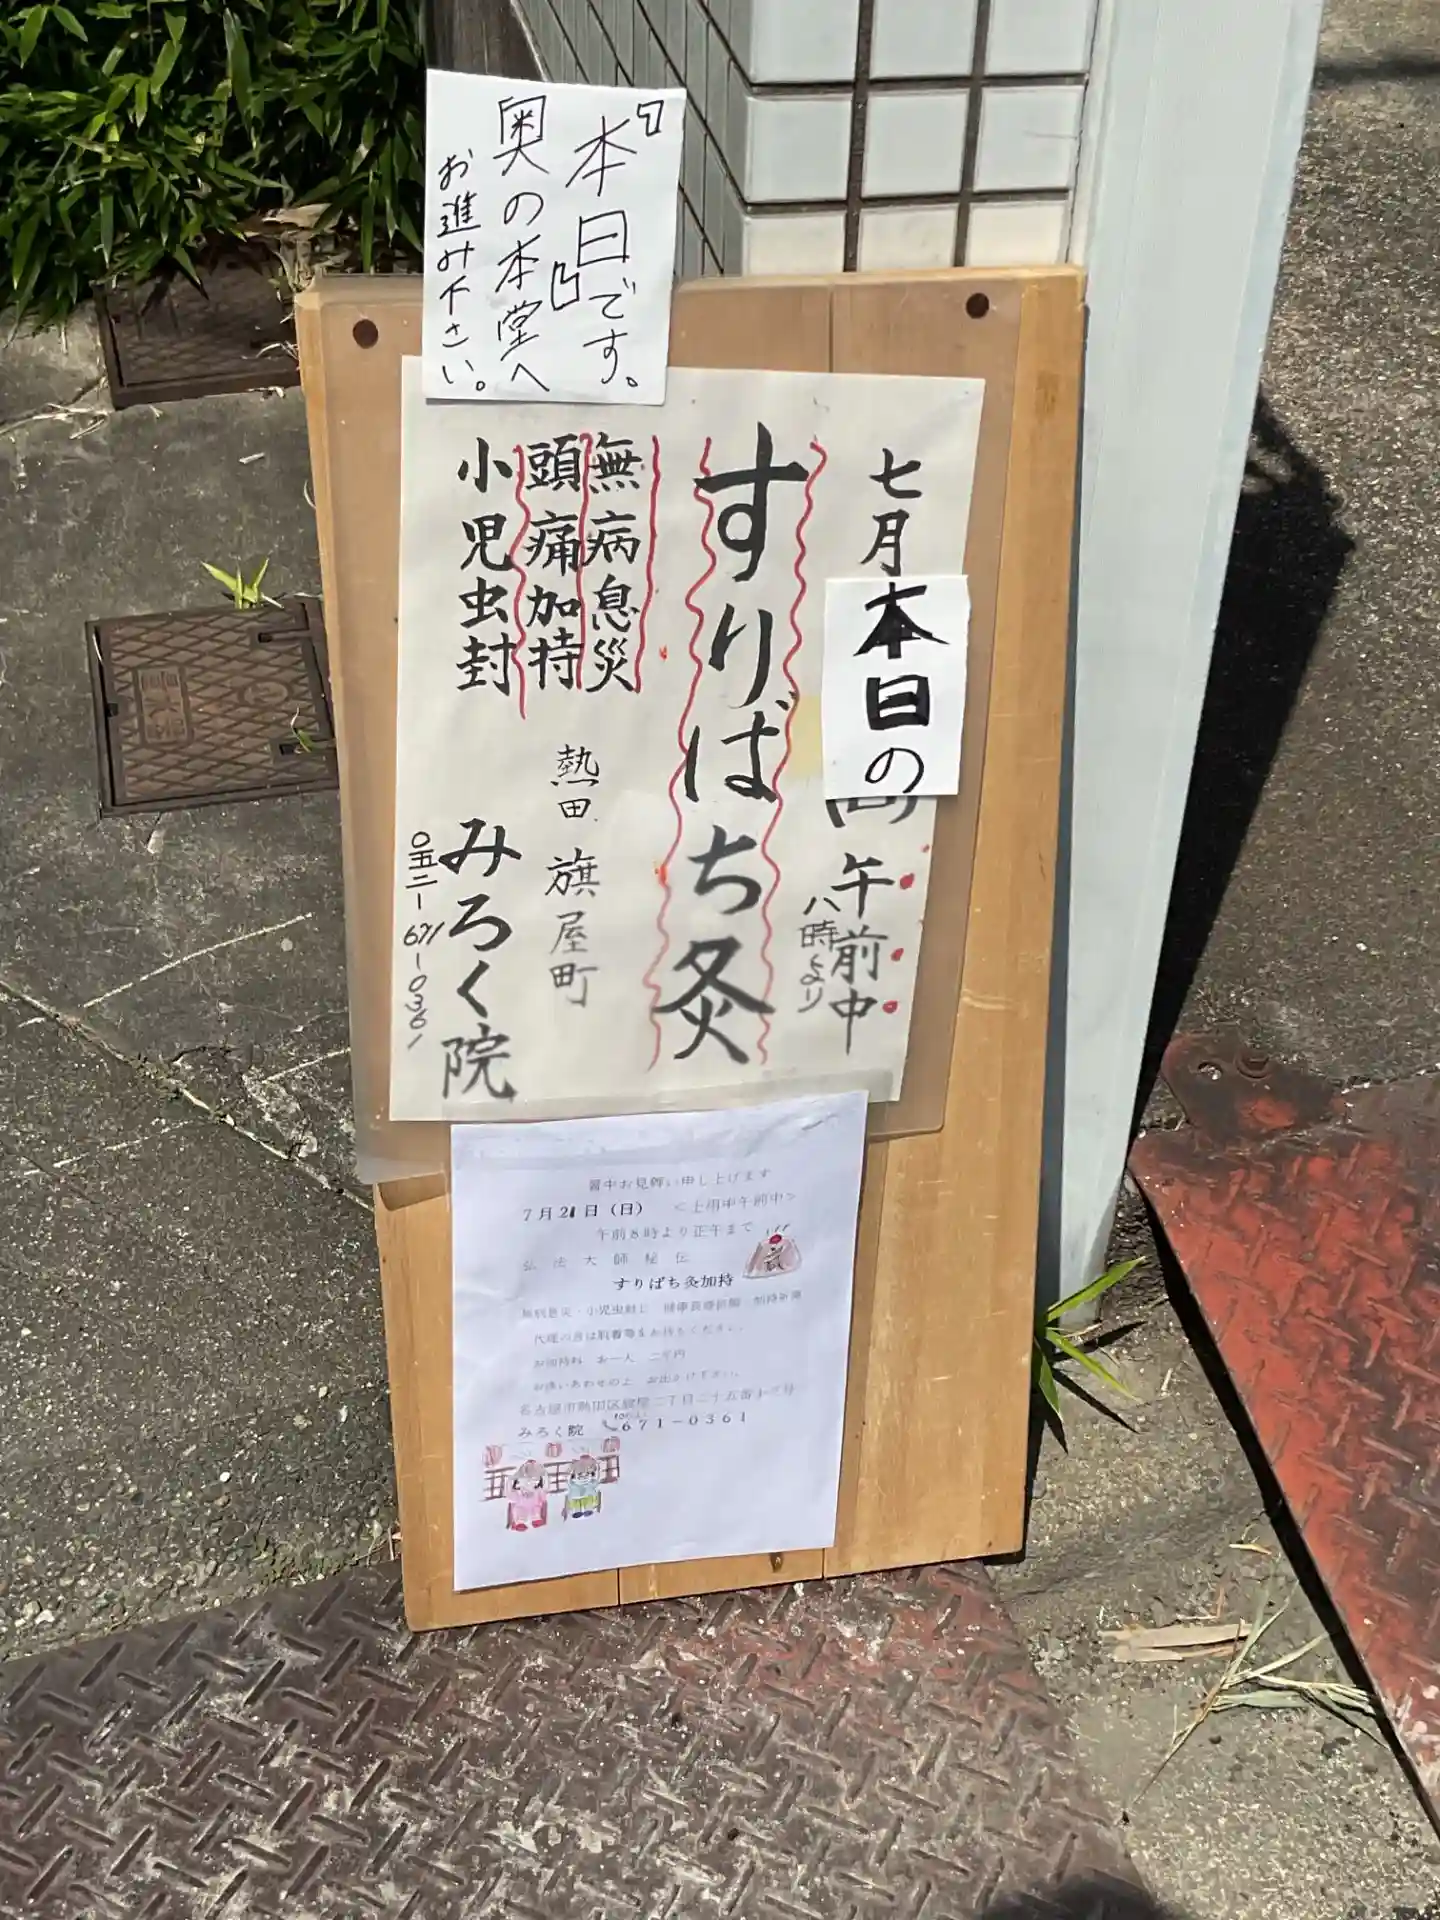 『本日』です。
奥の本堂へ
お進み下さい。
七月本日の午前中
八時より
すりばち灸
無病息災
頭痛加持
小児虫封
熱田 旗屋町
みろく院
〇五二-671-0361
暑中お見舞い申し上げます
7月21日(日) <土用中午前中>
午前8時より正午まで
弘法大師秘伝
すりばち灸加持
代理の方は肌着等をお持ちください。
お加持料 お一人 二千円
お誘いあわせの上 お出かけ下さい。
名古屋市熱田区旗屋二丁目二十五番十三号
みろく院 671-0361